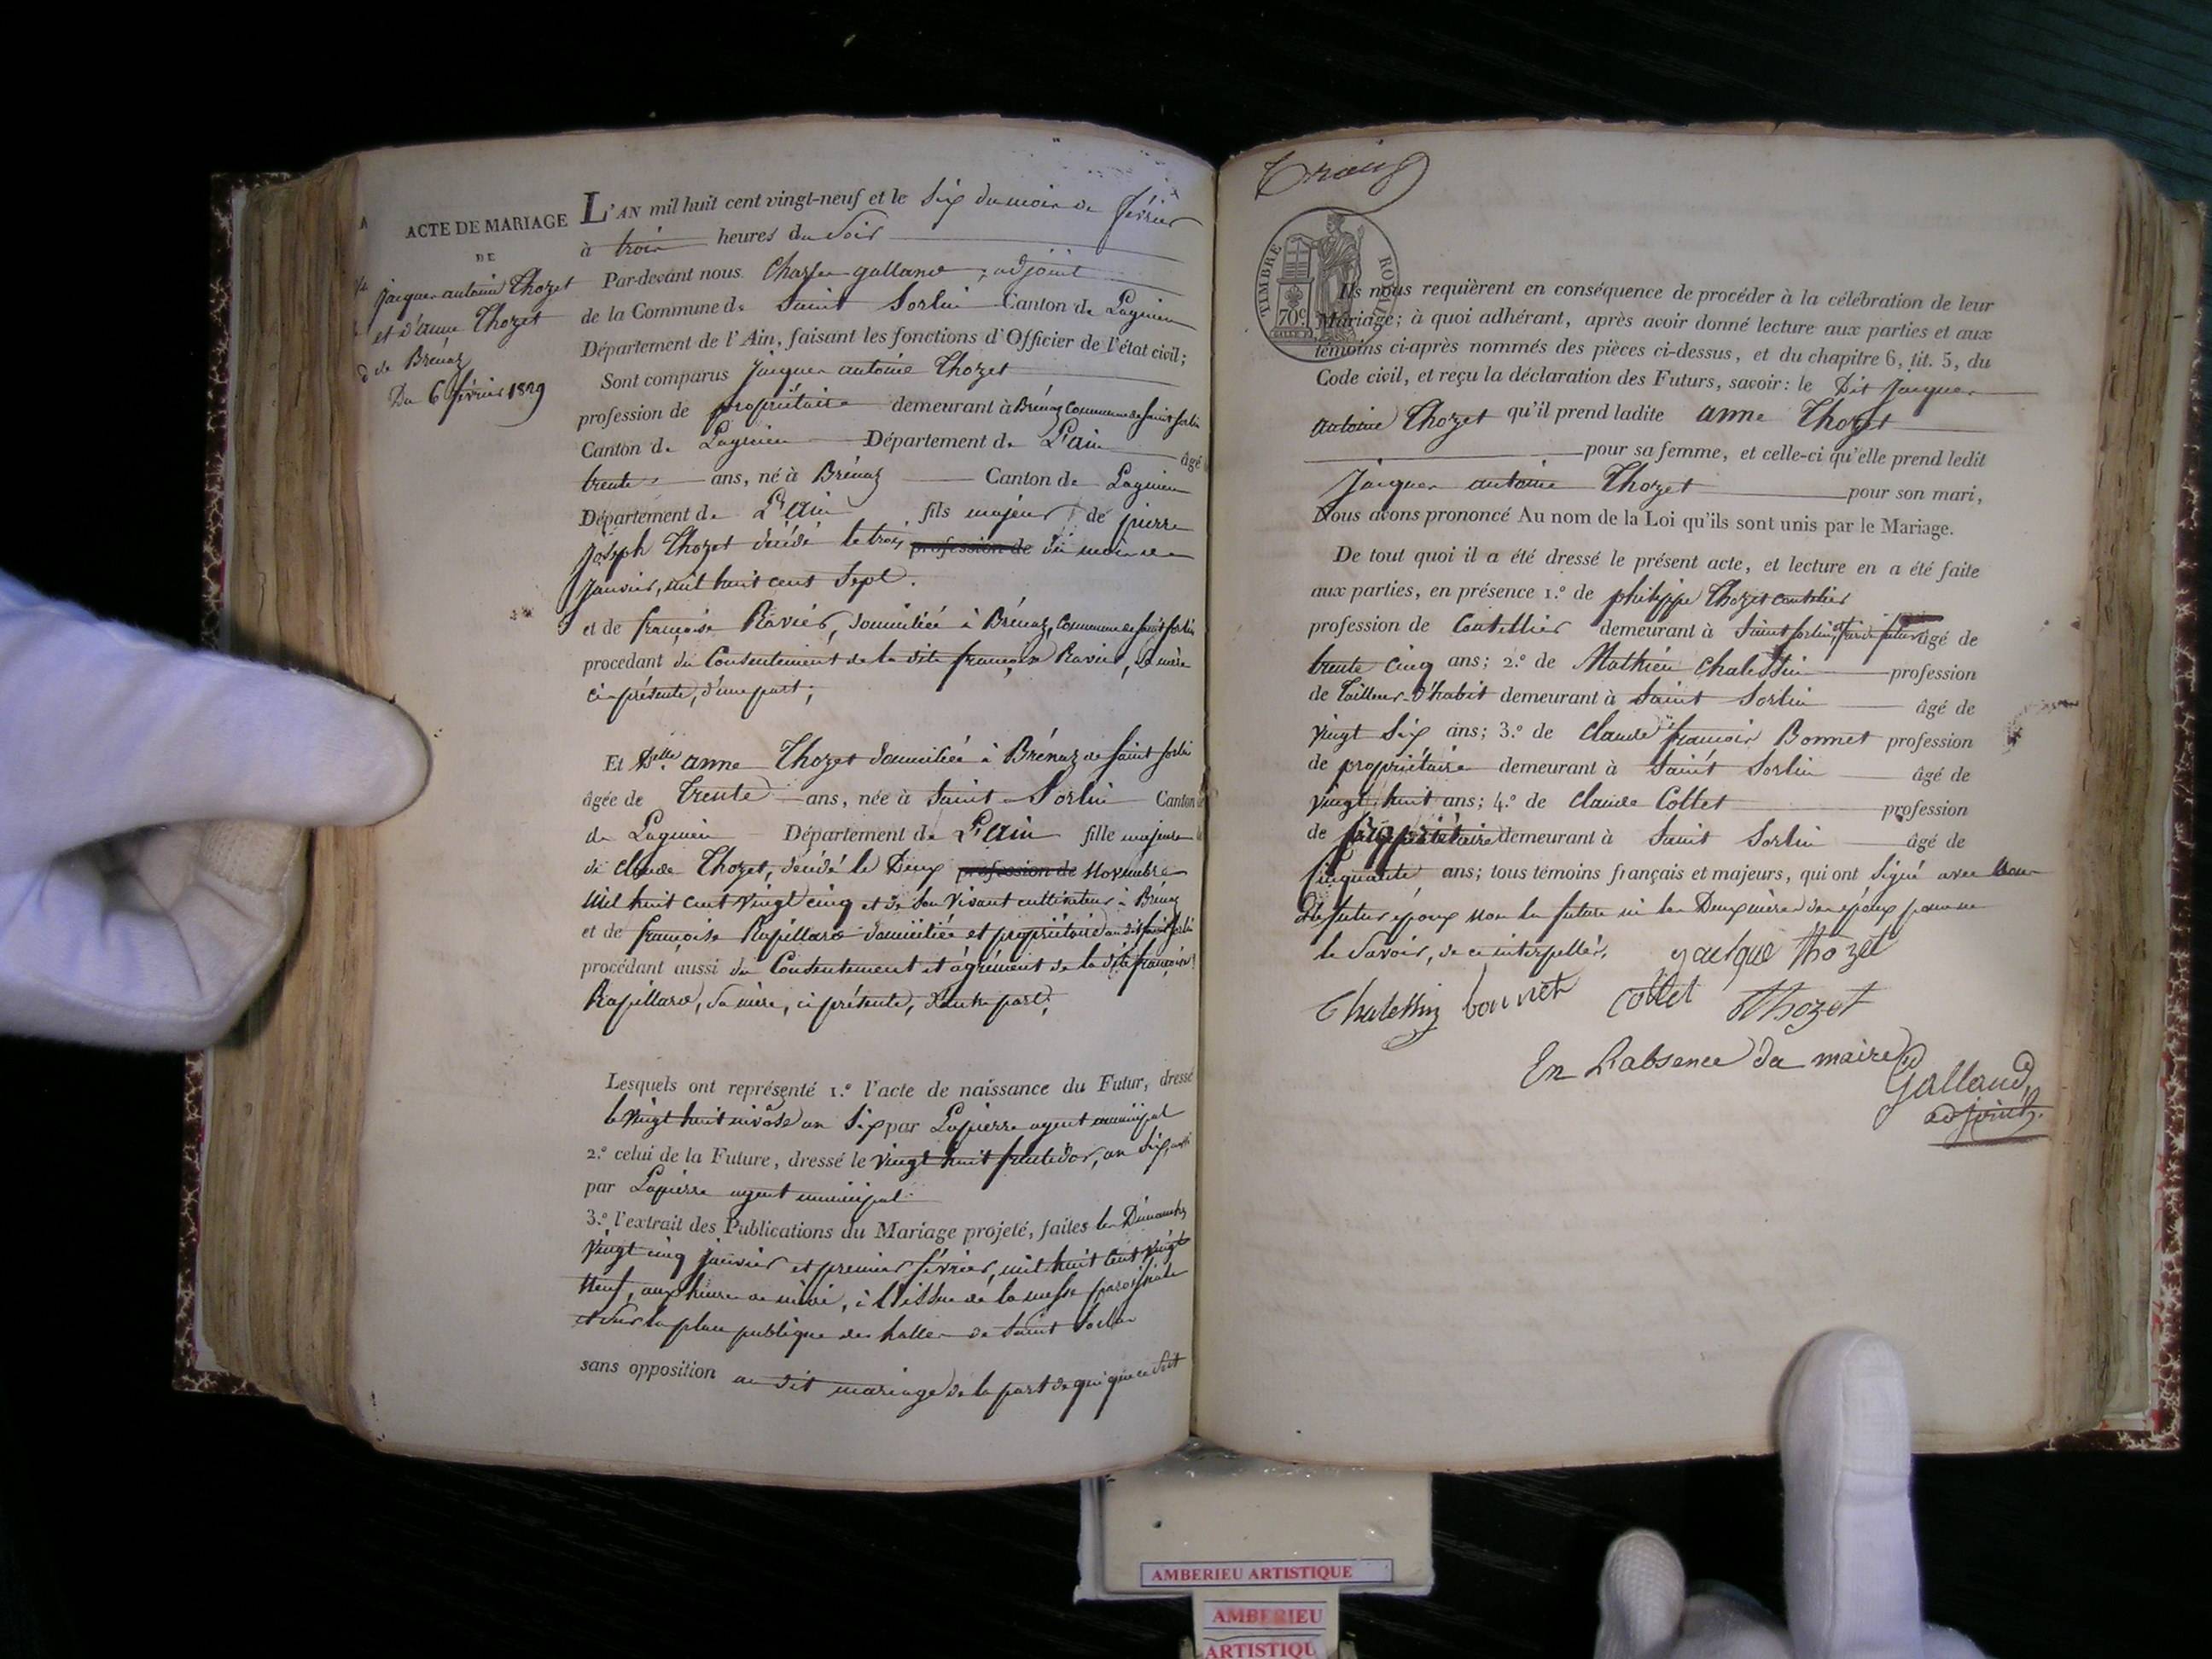 ACTE DE MARIAGE
DE
Jacques antoine Thozet
et d'anne Thozet
de Brénaz
Du 6 février 1829
L'AN mil huit cent vingt-neuf et le Six du mois de février
à trois heures du Soir
Par-devant nous Charles galland, adjoint
de la Commune de Saint Sorlin Canton de Lagnieu
Département de l'Ain, faisant les fonctions d'Officier de l'état civil;
Sont comparus Jacques antoine Thozet
profession de propriétaire demeurant à Brénaz Commune de Saint Sorlin
Canton de Lagnieu Département de L'ain âgé
trente ans, né à Brénaz Canton de Lagnieu
Département de L'Ain fils majeur de pierre
Joseph Thozet décédé le trois profession de du mois de
Janvier, mil huit cent Sept.
et de françoise Ravier, domiciliée à Brénaz, Commune de Saint Sorlin
procedant du Consentement de la dite françoise Ravier, Sa mère
ci-présente, d'une part;
Et Delle anne Thozet domiciliée à Brénaz de Saint Sorlin
âgée de Trente ans, née à Saint Sorlin Canton
de Lagnieu Département de L'Ain fille majeure
de Claude Thozet, décédé le Deux profession de Novembre
Mil huit cent vingt cinq et de Son vivant cultivateur à Brénaz
et de françoise Rapillard domiciliée et propriétaire au dit Saint Sorlin
procédant aussi du Consentement et agrément de la dite françoise
Rapillard, Sa mère, ci présente, d'autre part;
Lesquels ont représenté 1.º l'acte de naissance du Futur, dressé
le vingt huit nivôse an Six par Lapierre agent municipal
2.º celui de la Future, dressé le vingt huit fructidor, an Six, aussi
par Lapierre agent municipal.
3.º l'extrait des Publications du Mariage projeté, faites les Dimanches
vingt cinq janvier et premier février, mil huit Cent vingt
neuf, aux heures de midi, à l'issue de la messe paroissiale
et Sur la place publique des halles de Saint Sorlin
sans opposition au dit mariage de la part de qui que ce Soit
TIMBRE ROYAL
70c
Ils nous requièrent en conséquence de procéder à la célébration de leur
Mariage; à quoi adhérant, après avoir donné lecture aux parties et aux
témoins ci-après nommés des pièces ci-dessus, et du chapitre 6, tit. 5, du
Code civil, et reçu la déclaration des Futurs, savoir: le Dit Jacques
antoine Thozet qu'il prend ladite anne Thozet
pour sa femme, et celle-ci qu'elle prend ledit
Jacques antoine Thozet pour son mari,
Nous avons prononcé Au nom de la Loi qu'ils sont unis par le Mariage.
De tout quoi il a été dressé le présent acte, et lecture en a été faite
aux parties, en présence 1.º de philippe Thozet coutelier
profession de Coutellier demeurant à Saint Sorlin, frère du futur âgé de
trente cinq ans; 2.º de Mathieu Chalessin profession
de Tailleur d'habit demeurant à Saint Sorlin âgé de
vingt Six ans; 3.º de Claude françois Bonnet profession
de propriétaire demeurant à Saint Sorlin âgé de
vingt huit ans; 4.º de Claude Collet profession
de propriétaire demeurant à Saint Sorlin âgé de
Cinquante ans; tous témoins français et majeurs, qui ont Signé avec nous
et le futur époux non la future ni les Deux mères des époux pour ne
le Savoir, de ce interpellés.
jacque thozet
Chalessin bonnet Collet Thozet
En L'absence du maire
Galland
adjoint.
AMBERIEU ARTISTIQUE
AMBERIEU
ARTISTIQU